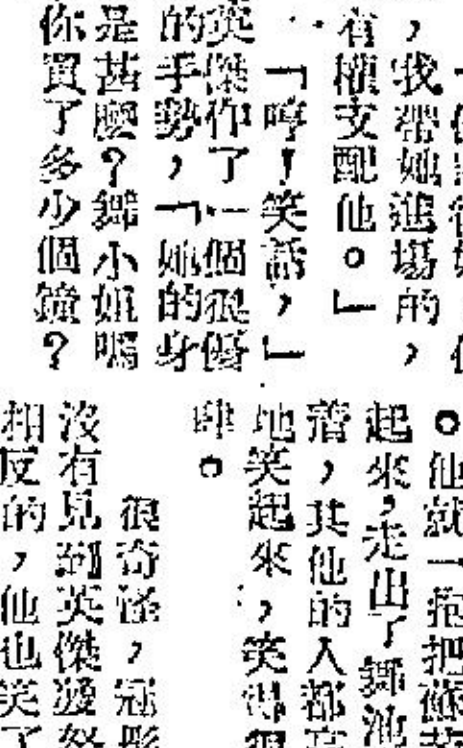 ，我帶她進場的，
有權支配他。」
「哼！笑話，」
英傑作了一個很優
的手勢，「她的身
是甚麼？舞小姐嗎
你買了多少個鐘？
。他就一抱把
起來，走出了舞池
，其他的人都
地笑起來，笑得很
肆。
很奇怪，冠
沒有見到英傑發怒
相反的，他也笑了